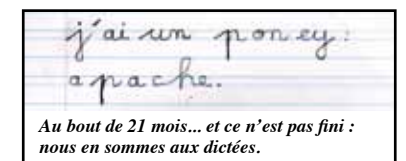 j'ai un poney :
apache.
Au bout de 21 mois... et ce n'est pas fini :
nous en sommes aux dictées.